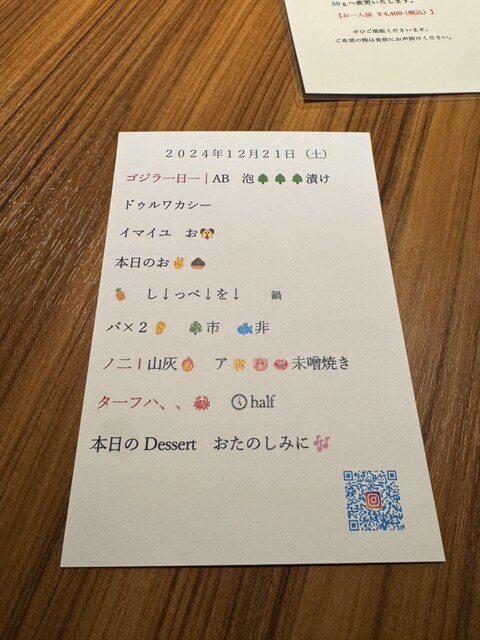 50gへ変更いたします。
【お一人様 ¥4,400-(税込)】
ぜひご堪能くださいませ。
ご希望の際は食前にお声掛けください。
2024年12月21日（土）
ゴジラ一日一｜AB 泡🌳🌳🌳漬け
ドゥルワカシー
イマイユ お🐶
本日のお✌️🌰
🍍 し↓っぺ↓を↓ 鍋
バ×2👂 🌳市 🐟非
ノ二｜山灰🔥 ア 未噌焼き
ターフハ、、🦀 🕔half
本日のDessert おたのしみに🎶